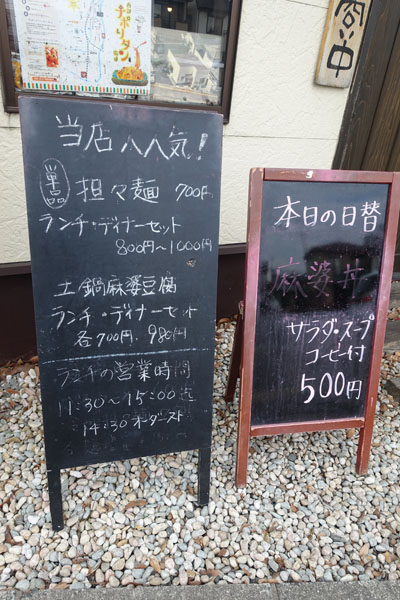 ナポリタン
商い中
当店人気!
単品 担々麺 700円
ランチ・ディナーセット
800円〜1000円
土鍋麻婆豆腐
ランチ・ディナーセット
各700円. 980円
ランチの営業時間
11:30〜15:00迄
14:30オーダースト
本日の日替
麻婆丼
サラダ・スープ
コーヒー付
500円